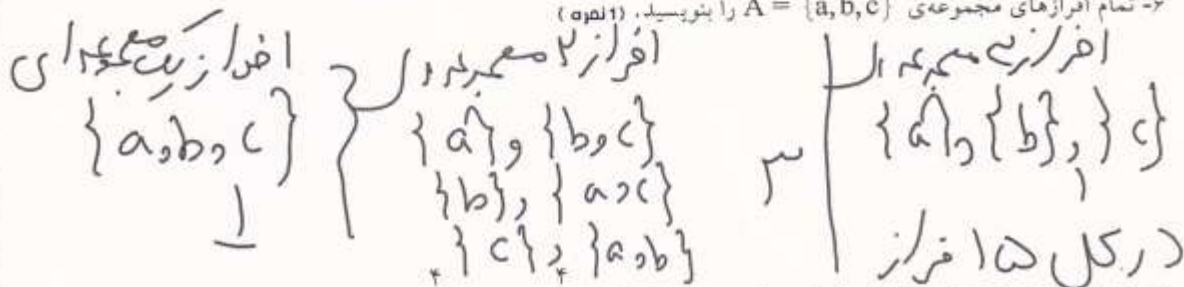 ۶- تمام افرازهای مجموعه‌ی A = {a,b,c} را بنویسید. (1 نمره)
افراز سه مجموعه ای
{a} و {b} و {c}
۱
افراز ۲ مجموعه ای
{a} و {b و c}
{b} و {a و c}
{c} و {a و b}
۳
افراز یک مجموعه ای
{a و b و c}
۱
در کل ۵ افراز